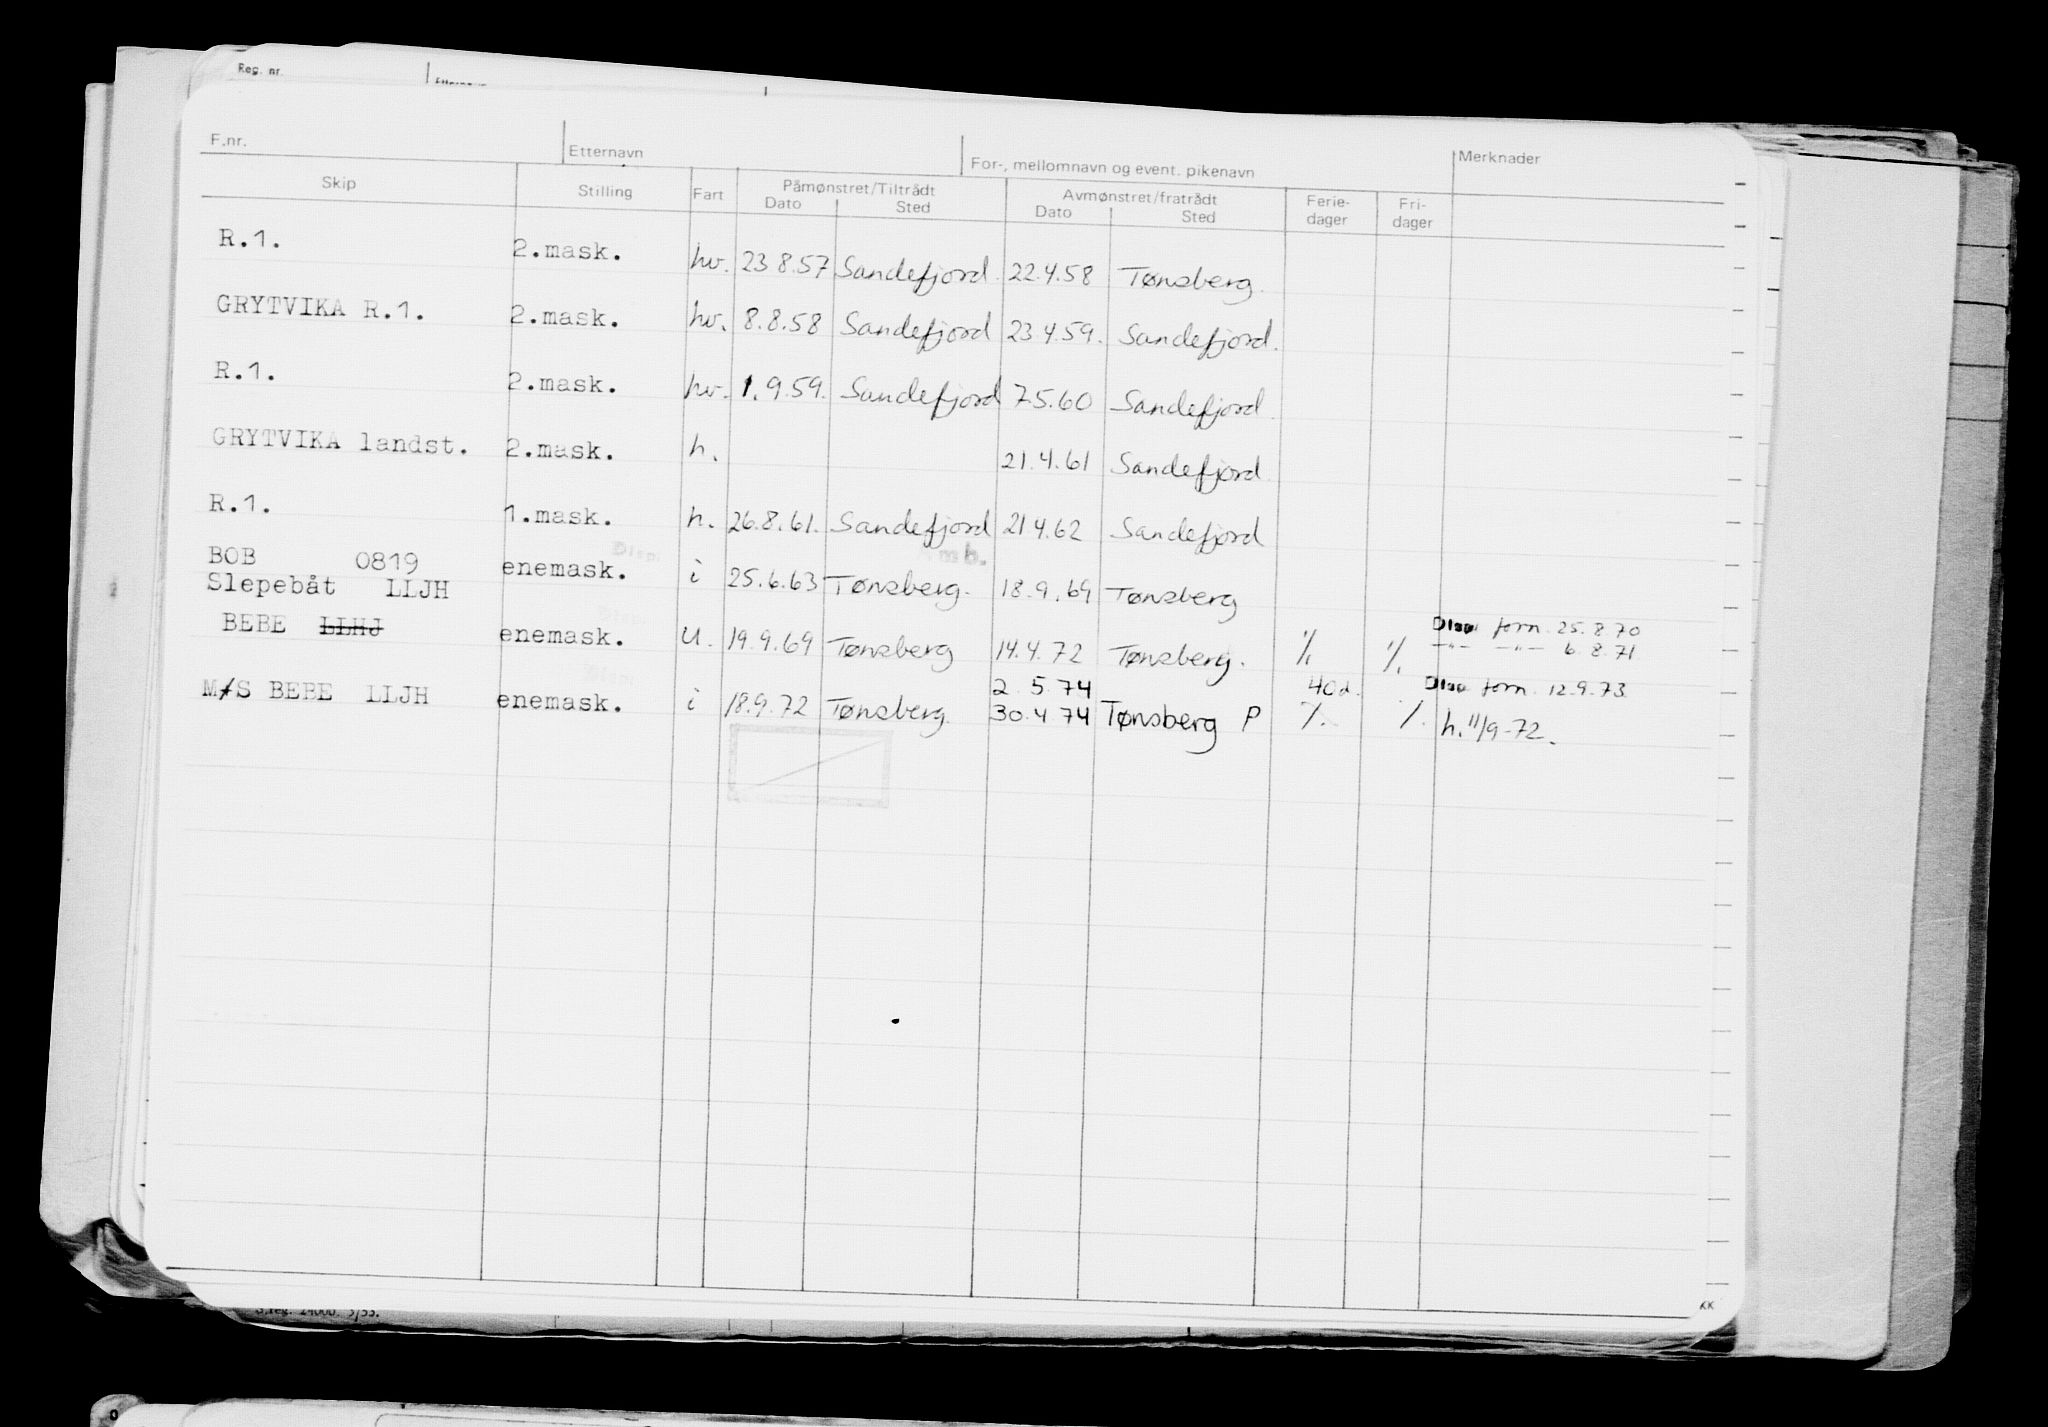 Reg. nr.
F.nr. Etternavn For-, mellomnavn og event. pikenavn Merknader
Skip Stilling Fart Påmønstret/Tiltrådt Avmønstret/fratrådt Ferie- Fri-
Dato Sted Dato Sted dager dager
R.1. 2.mask. hv. 23.8.57 Sandefjord. 22.4.58 Tønsberg.
GRYTVIKA R.1. 2.mask. hv. 8.8.58 Sandefjord 23.4.59. Sandefjord.
R.1. 2.mask. hv. 1.9.59. Sandefjord 7.5.60 Sandefjord.
GRYTVIKA landst. 2.mask. h. 21.4.61 Sandefjord.
R.1. 1.mask. h. 26.8.61. Sandefjord 21.4.62 Sandefjord
BOB 0819 enemask. i 25.6.63 Tønsberg. 18.9.69 Tønsberg
Slepebåt LLJH
BEBE LLHJ enemask. u. 19.9.69 Tønsberg 14.4.72 Tønsberg. ./. ./. Disp forn. 25.8.70
—"— —"— 6.8.71
2.5.74 40d. Disp forn. 12.9.73
M/S BEBE LLJH enemask. i 18.9.72 Tønsberg. 30.4.74 Tønsberg P ./. ./. h. 11/9-72.
S.reg. 24000. 3/53.
KK